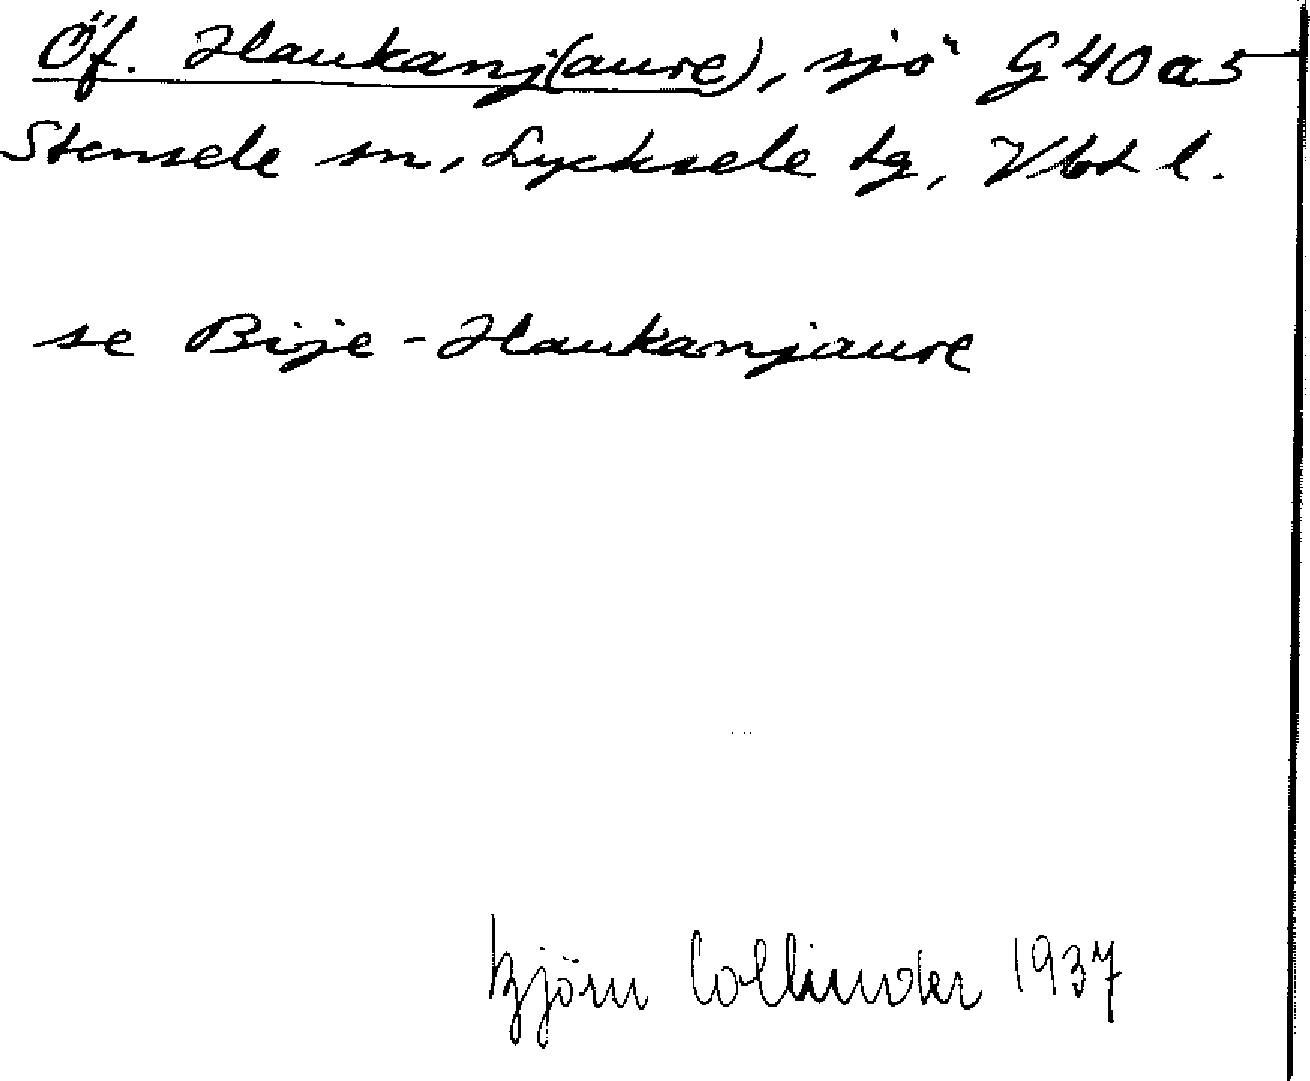 Öf. Haukanj(aure), sjö G40a5
Stensele sn, Lycksele tg, Vbt l.
se Bije-Haukanjaure
Björn Collinder 1937